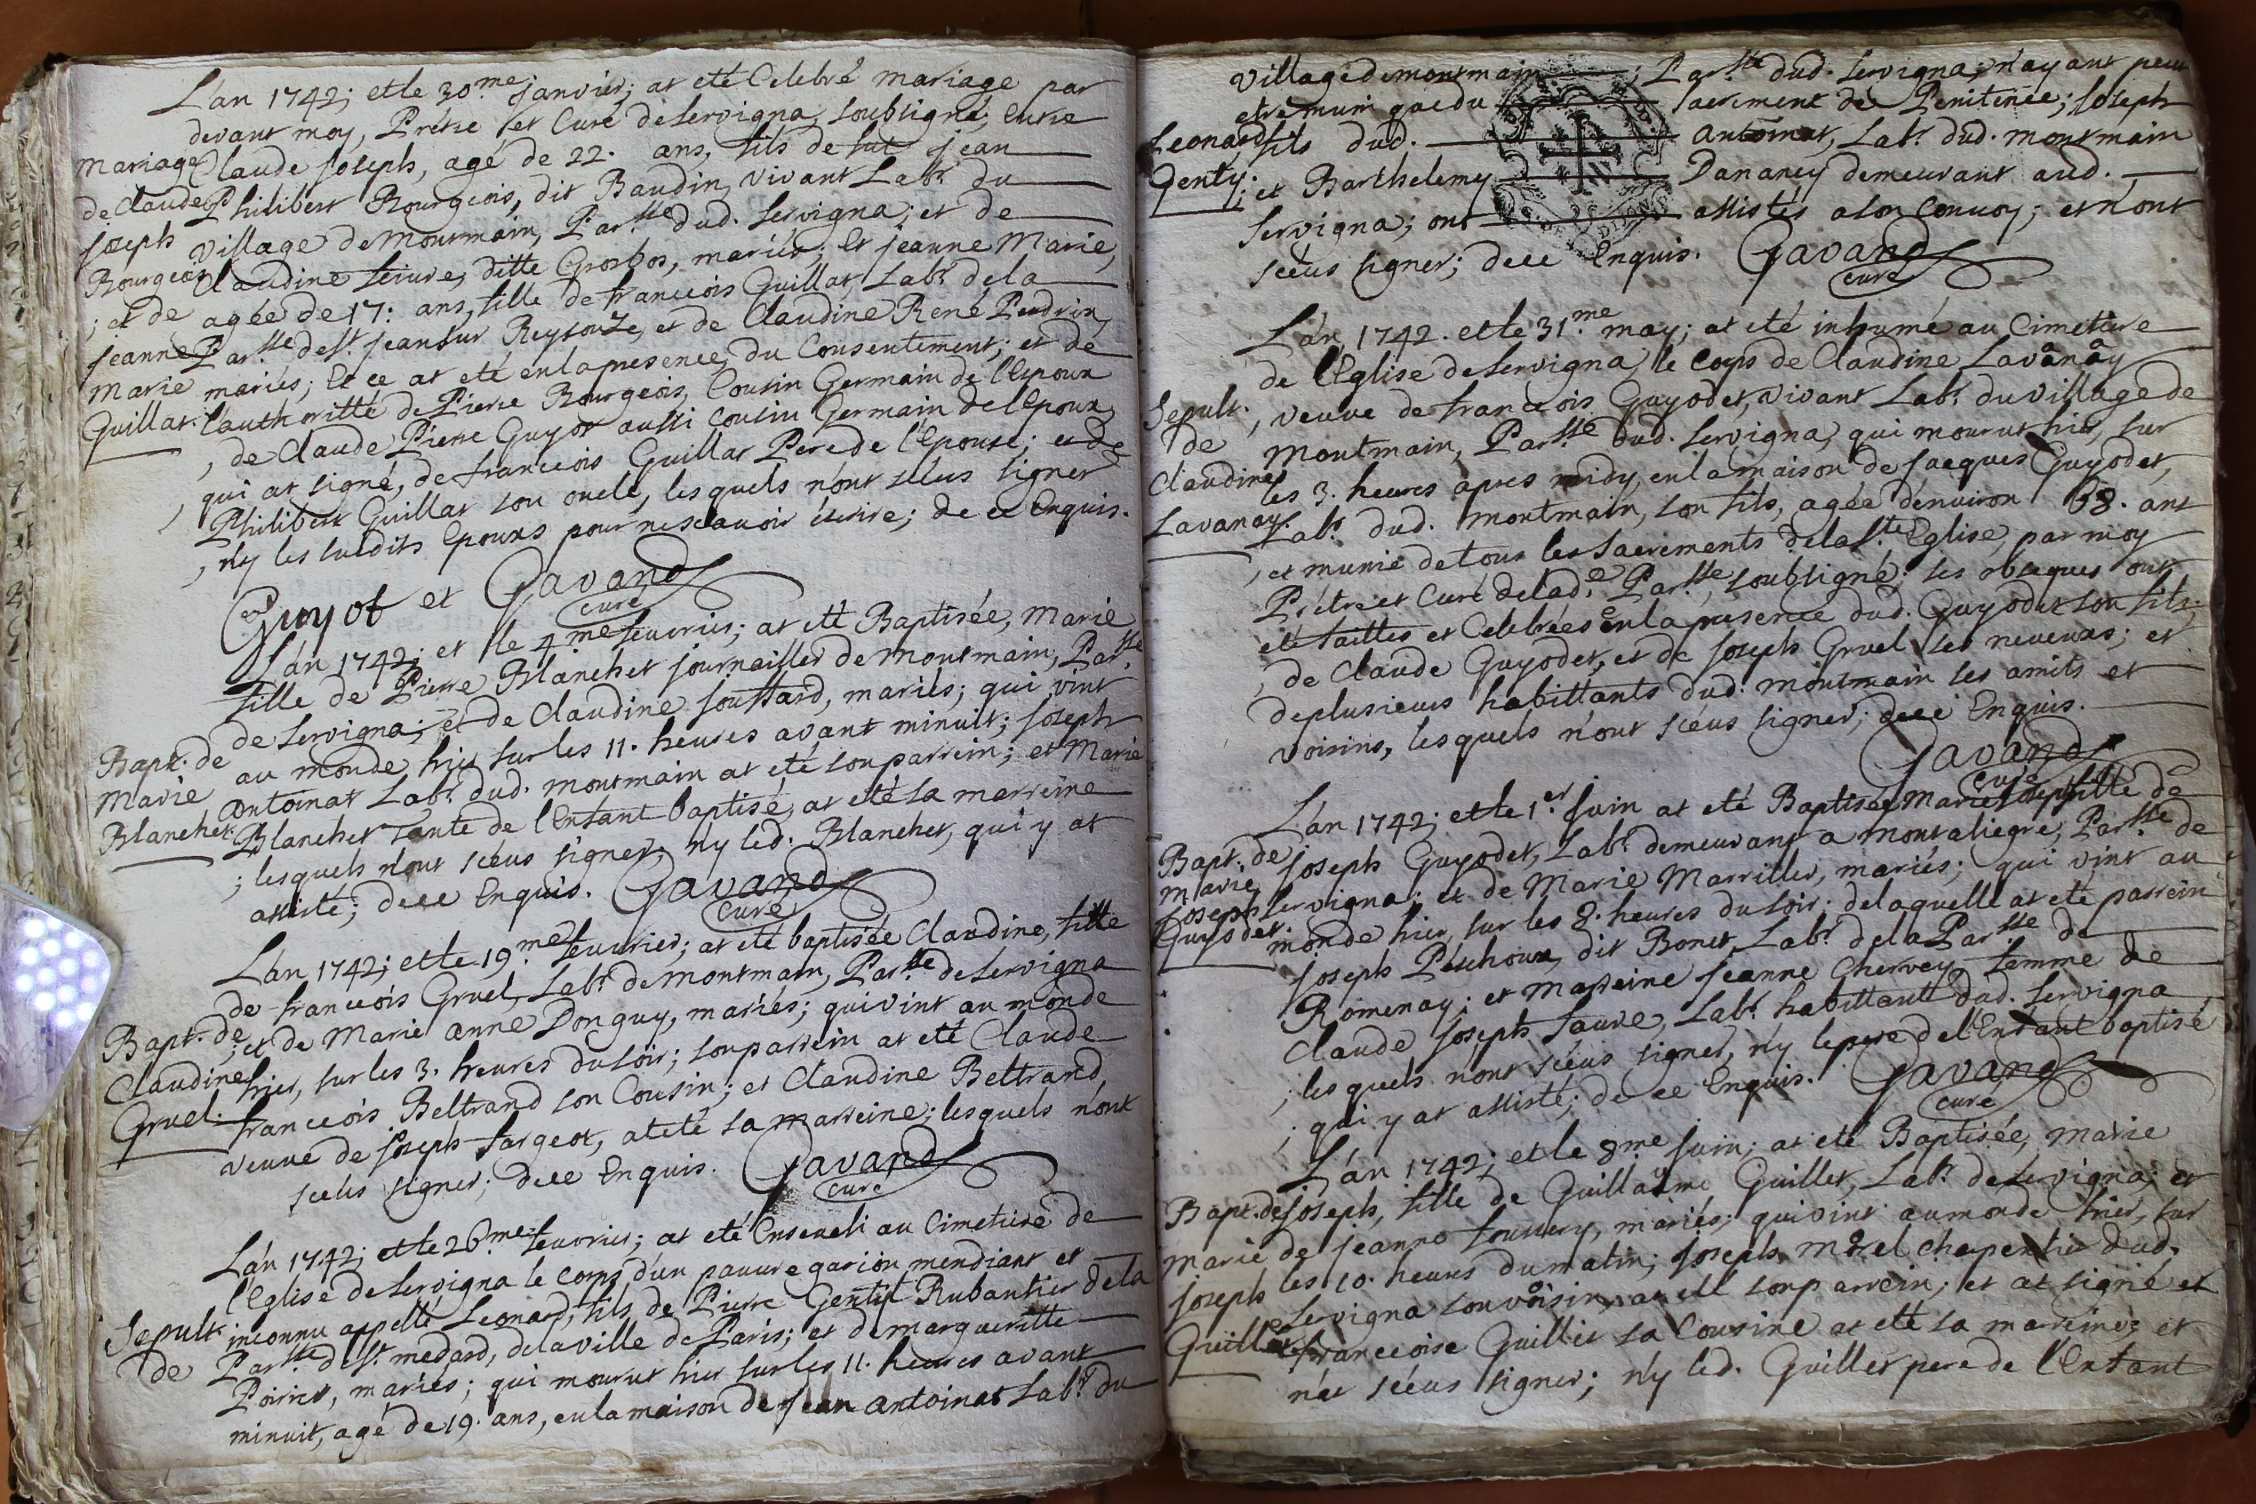 L'an 1742; et le 30.me janvier; at eté Celebré mariage par
devant moy, Prétre et Curé de Servigna, soubsigné, entre
Claude joseph, agé de 22. ans, fils de fut jean
Philibert Bourgeois, dit Baudin, vivant Labr. du
village de Montmain, Par.sse dud. Servigna; et de
Claudine feivre, ditte Grosbos, mariés; Et jeanne Marie,
agée de 17: ans, fille de franceois Guillat, Labr. de la
Par.sse de St. jean sur Reysouze, et de Claudine René Perdrix,
mariés; Et ce at eté en la presence, du Consentement; et de
l'authoritté de Pierre Bourgeois, Cousin Germain de l'Epoux
, de Claude Pierre Guyot aussi Cousin Germain de l'Epoux,
qui at signé, de franceois Guillat Pere de l'Epouse; et de
, Philibert Guillat son oncle, lesquels n'ont sceus signer
, n'y les susdits Epoux pour ne sçavoir écrire; de ce Enquis.
Mariage
de Claude
joseph
Bourgeois
; et de
jeanne
Marie
Guillat.
Guyot et Gavand
curé
L'an 1742; et le 4.me fevrier; at eté Baptisée, Marie
fille de Pierre Blanchet journaillier de Montmain, Par.sse
de Servigna; et de Claudine jouffard, mariés; qui vint
au monde hier sur les 11. heures avant minuit; joseph
antoinat Labr. dud. montmain at eté son parrein; et Marie
Blanchet tante de l'Enfant baptisé, at eté sa marreine
; lesquels n'ont sceus signer, n'y led. Blanchet, qui y at
assisté; de ce Enquis. Gavand
curé
Bapt. de
Marie
Blanchet.
L'an 1742; et le 19.me fevrier; at eté baptisée Claudine, fille
de franceois Gruel, Labr. de Montmain, Par.sse de Servigna
; et de Marie anne Donguy, mariés; qui vint au monde
hier, sur les 3. heures du soir; son parrein at eté Claude
franceois Beltrand son Cousin; et Claudine Beltrand,
veuve de joseph fargeot, at eté sa marreine; lesquels n'ont
sceus signer; de ce Enquis. Gavand
curé
Bapt. de
Claudine
Gruel.
L'an 1742; et le 26.me fevrier; at eté Enseveli au Cimetiere de
l'Eglise de Servigna le Corps d'un pauvre garçon mendiant et
inconnu appellé Leonard, fils de Pierre Gentil Rubantier de la
Par.sse de St. medard, de la ville de Paris; et de margueritte
Poirier, mariés; qui mourut hier sur les 11. heures avant
minuit, agé de 19. ans, en la maison de jean antoinat Labr. du
Sepult.
de
village de montmain; Par.sse dud. Servigna; n'ayant peu
etre muni que du Sacrement de Penitence; joseph
fils dud. antoinat, Labr. dud. montmain
; et Barthelemy Dananey demeurant aud.
Servigna; ont assistés a son Convoy; et n'ont
sceus signer; de ce Enquis. Gavand
curé
Leonard
Genty.
L'an 1742. et le 31.me may; at eté inhumé au Cimetiere
de l'Eglise de Servigna, le Corps de Claudine Lavanay
, veuve de franceois Guyodet, vivant Labr. du village de
Montmain, Par.sse dud. Servigna, qui mourut hier, sur
les 3. heures apres midy, en la maison de jacques Guyodet,
Labr. dud. montmain, son fils, agée d'environ 68. ans
, et munie de tous les Sacrements de la Ste. Eglise, par moy
Prétre et Curé de lad.e Par.sse, soubsigné; ses obseques ont
eté faittes et Celebrées en la presence dud. Guyodet son fils,
, de Claude Guyodet, et de joseph Gruel ses neveux; et
de plusieurs habittants dud. montmain ses amits et
voisins, lesquels n'ont sceus signer; de ce Enquis.
Gavand
curé
Sepult.
de
Claudine
Lavanay.
L'an 1742; et le 1.er juin at eté Baptisée Marie joseph fille de
joseph Guyodet, Labr. demeurant a Montaliegre, Par.sse de
Servigna; et de Marie Marriller, mariés; qui vint au
monde hier, sur les 8. heures du soir; de laquelle at eté parrein
joseph Péchoux, dit Bonet, Labr. de la Par.sse de
Romenay; et Marreine jeanne Chervey femme de
Claude joseph faure, Labr. habittant dud. Servigna
; lesquels n'ont sceus signer, n'y le pere de l'Enfant baptisé
; qui y at assisté; de ce Enquis. Gavand
curé
Bapt. de
marie
joseph
Guyodet.
L'an 1742; et le 8.me juin; at eté Baptisée, Marie
joseph, fille de Guillaume Guillet, Labr. de Servigna; et
de jeanne, mariés; qui vint au monde hier, sur
les 10. heures du matin; joseph Morel charpentier dud.
Servigna son voisin, at eté son parrein; et at signé et
franceoise Guillet sa Cousine at eté sa marreine; et
n'at sceus signer; n'y led. Guillet pere de l'Enfant
Bapt. de
marie
joseph
Guillet.